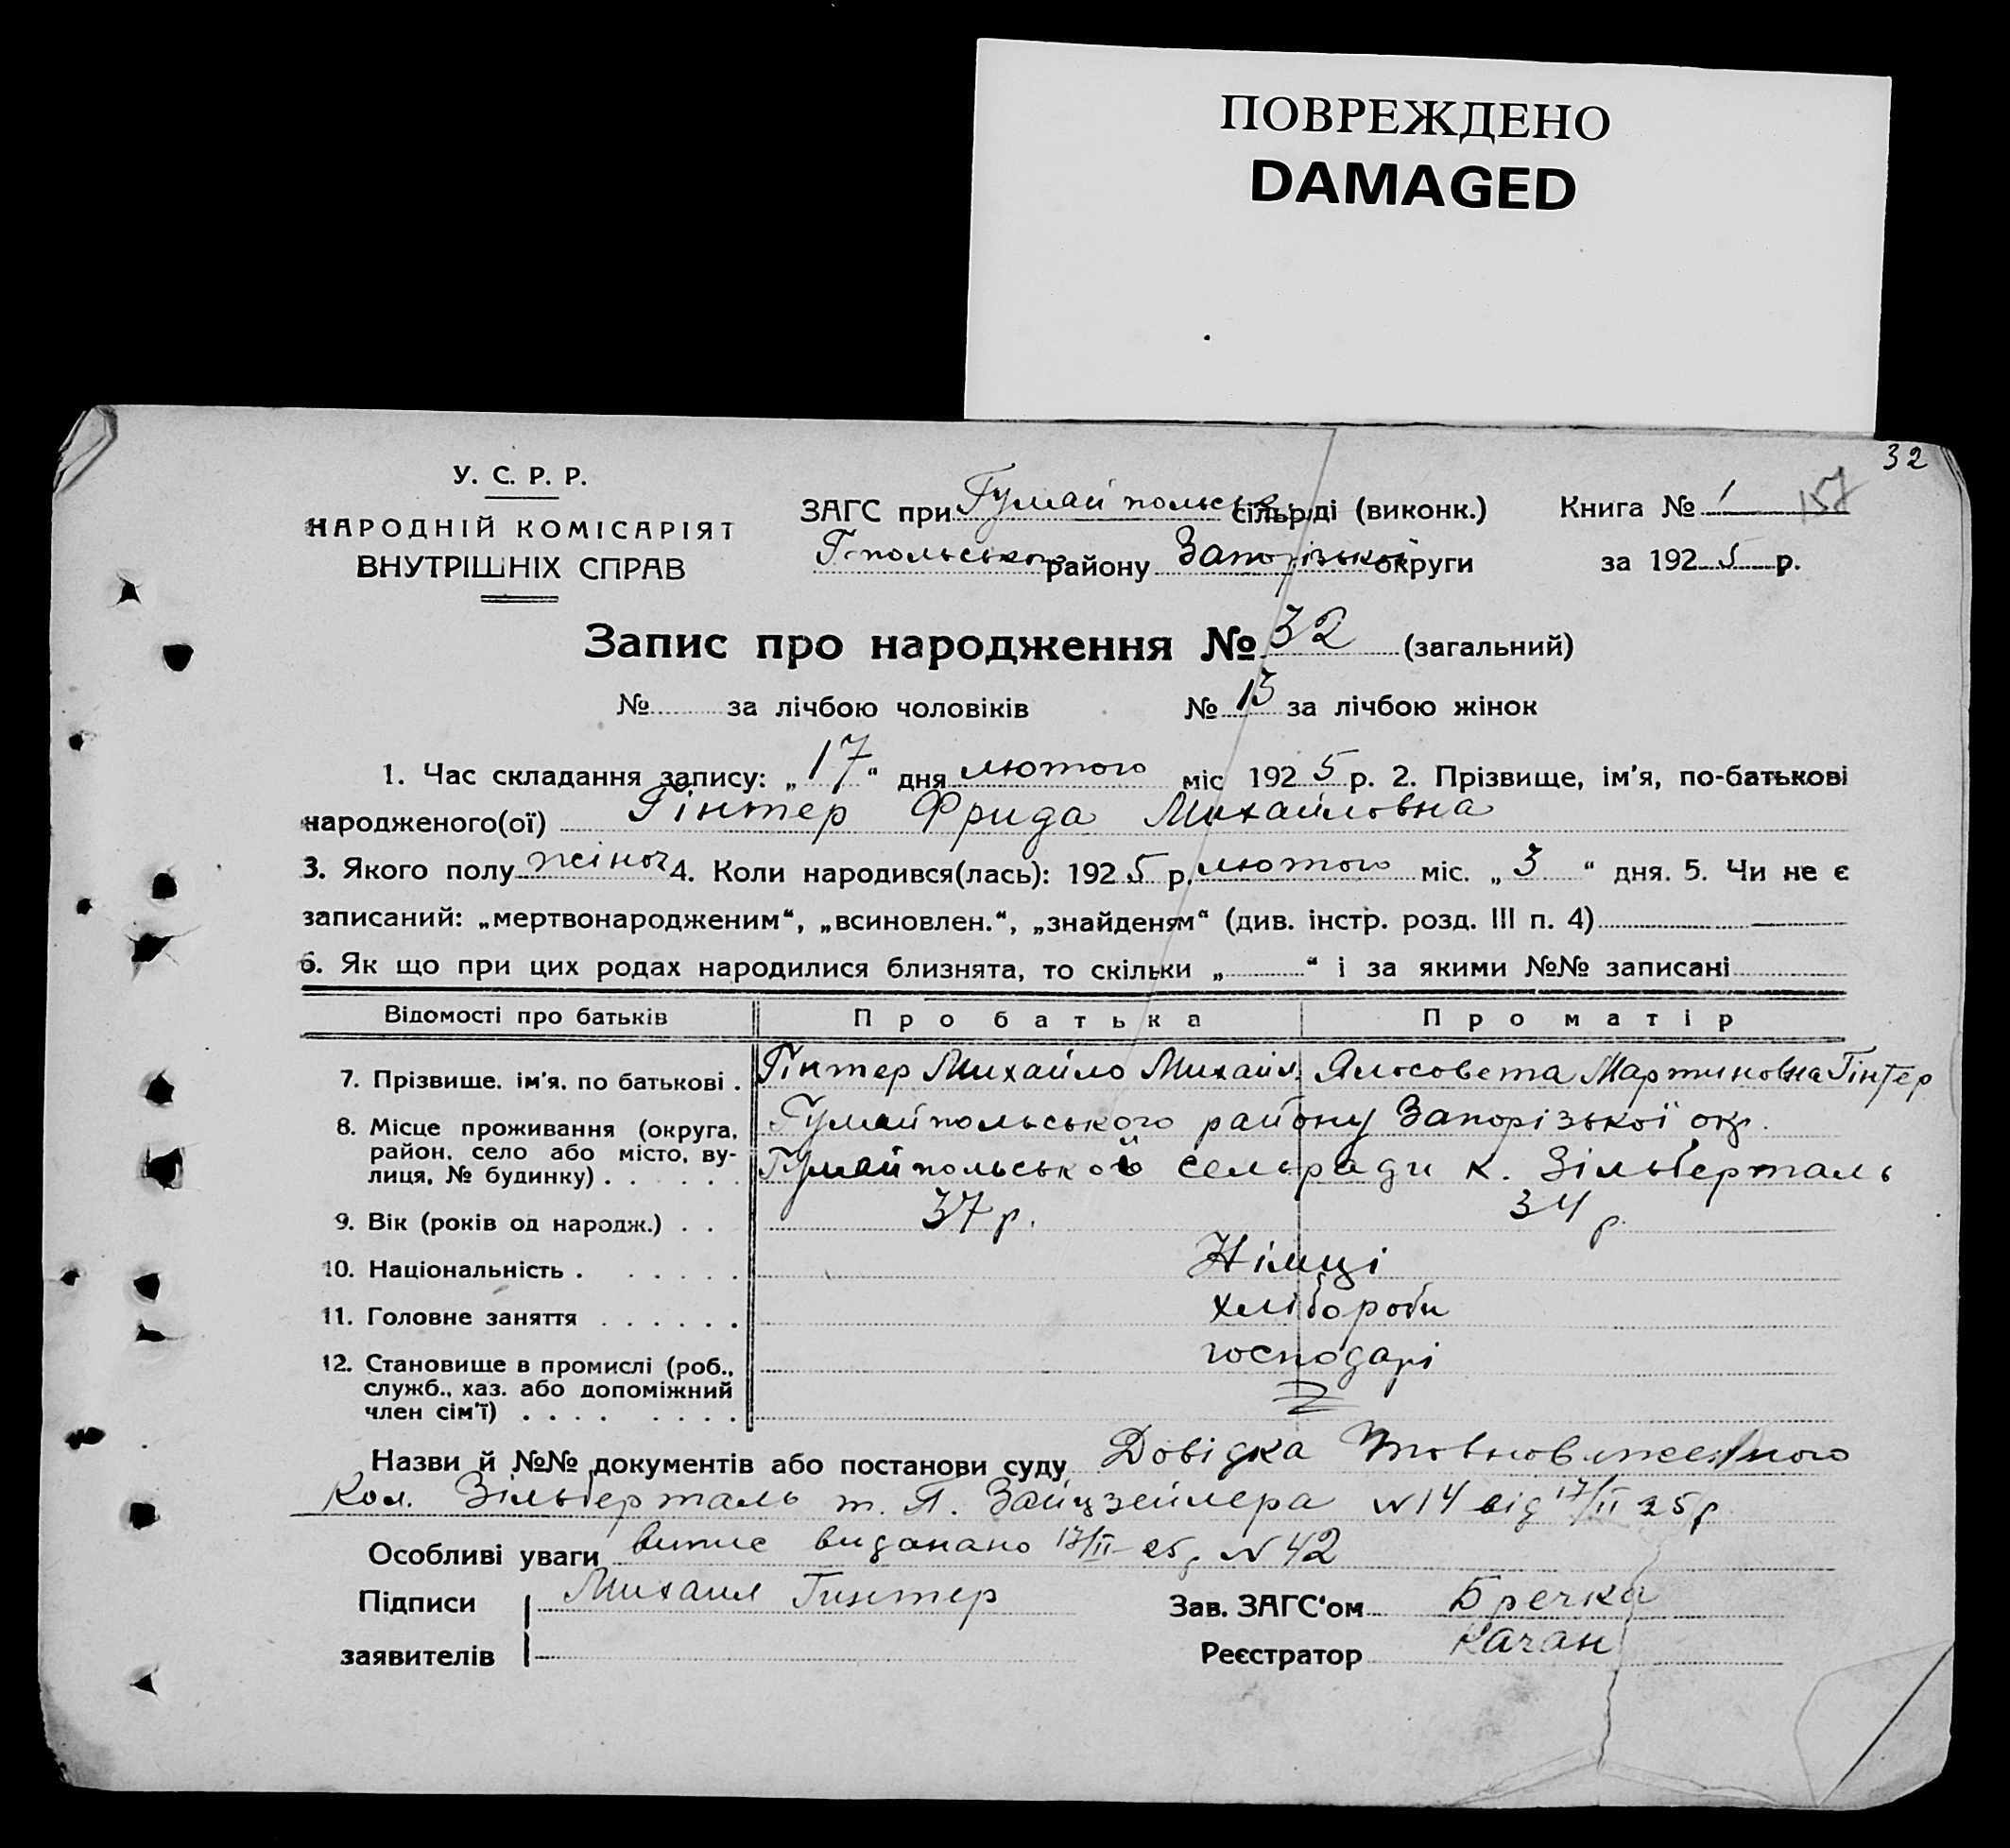 ПОВРЕЖДЕНО
DAMAGED
32
У. С. Р. Р.
НАРОДНІЙ КОМІСАРІЯТ
ВНУТРІШНІХ СПРАВ
ЗАГС при Гумайпольськ сільр.ді (виконк.)
Г-польського району Запорізької округи
Книга № 1 157
за 1925 р.
Запис про народження № 32 (загальний)
№ за лічбою чоловіків № 13 за лічбою жінок
1. Час складання запису: „17“ дня лютого міс 1925 р. 2. Прізвище, ім'я, по-батькові
народженого(ої) Гінтер Фрида Михайловна
3. Якого полу жіноч 4. Коли народився(лась): 1925 р. лютого міс. „3“ дня. 5. Чи не є
записаний: „мертвонародженим“, „всиновлен.“, „знайденям“ (див. інстр. розд. III п. 4)
6. Як що при цих родах народилися близнята, то скільки „ “ і за якими №№ записані
Відомості про батьків Про батька Про матір
7. Прізвище. ім'я. по батькові . Гінтер Михайло Михайл. Ялисовета Мартиновна Гінтер
8. Місце проживання (округа, Гумайпольського району Запорізької окр.
район, село або місто, ву-
лиця, № будинку) . . . . . Гумайпольської сельради к. Зільберталь
9. Вік (років од народж.) . . 37 р. 34 р.
10. Національність . . . . . . Німці
11. Головне заняття . . . . . . хлібороби
12. Становище в промислі (роб., господарі
служб., хаз. або допоміжний
член сім'ї) . . . . . . . .
Назви й №№ документів або постанови суду Довідка
Кол. Зільберталь т. Зайцзейлера N14 від 17/II 25 р
Особливі уваги витис видано 17/II 25 р N 42
Підписи Михаил Гинтер Зав. ЗАГС'ом Бречка
заявителів Реєстратор Качан